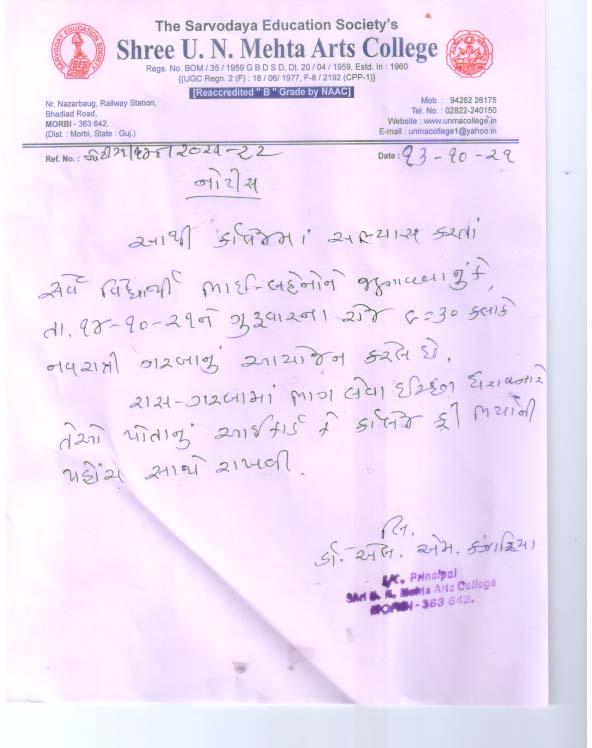 The Sarvodaya Education Society's
Shree U. N. Mehta Arts College
Regs. No. BOM / 35 / 1959 G B D S D, Dt. 20 / 04 / 1959. Estd. In : 1960
{(UGC Regn. 2 (F) : 18 / 06/ 1977, F-8 / 2192 (CPP-1)}
[Reaccredited " B " Grade by NAAC]
Nr. Nazarbaug, Railway Station,
Bhadiad Road,
MORBI - 363 642.
(Dist. : Morbi, State : Guj.)
Mob. : 94262 26175
Tel. No. : 02822-240150
Website : www.unmacollege.in
E-mail : unmacollege1@yahoo.in
Ref. No. : ૨૦૨૧-૨૨
Date : ૧૩-૧૦-૨૧
નોટીસ
આથી કોલેજમાં અભ્યાસ કરતાં
સર્વે વિદ્યાર્થી ભાઈ-બહેનોને જણાવવાનું કે,
તા. ૧૪-૧૦-૨૧ને ગુરૂવારના રોજ ૯=૩૦ કલાકે
નવરાત્રી ગરબાનું આયોજન કરેલ છે.
રાસ-ગરબામાં ભાગ લેવા ઈચ્છા ધરાવનારે
તેઓ પોતાનું આઈકાર્ડ કે કોલેજ ફી ભર્યાની
પહોંચ સાથે રાખવી.
લિ.
ડૉ. એલ. એમ. કંઝારિયા
I/C. Principal
Shri U. N. Mehta Arts College
MORBI - 363 642.